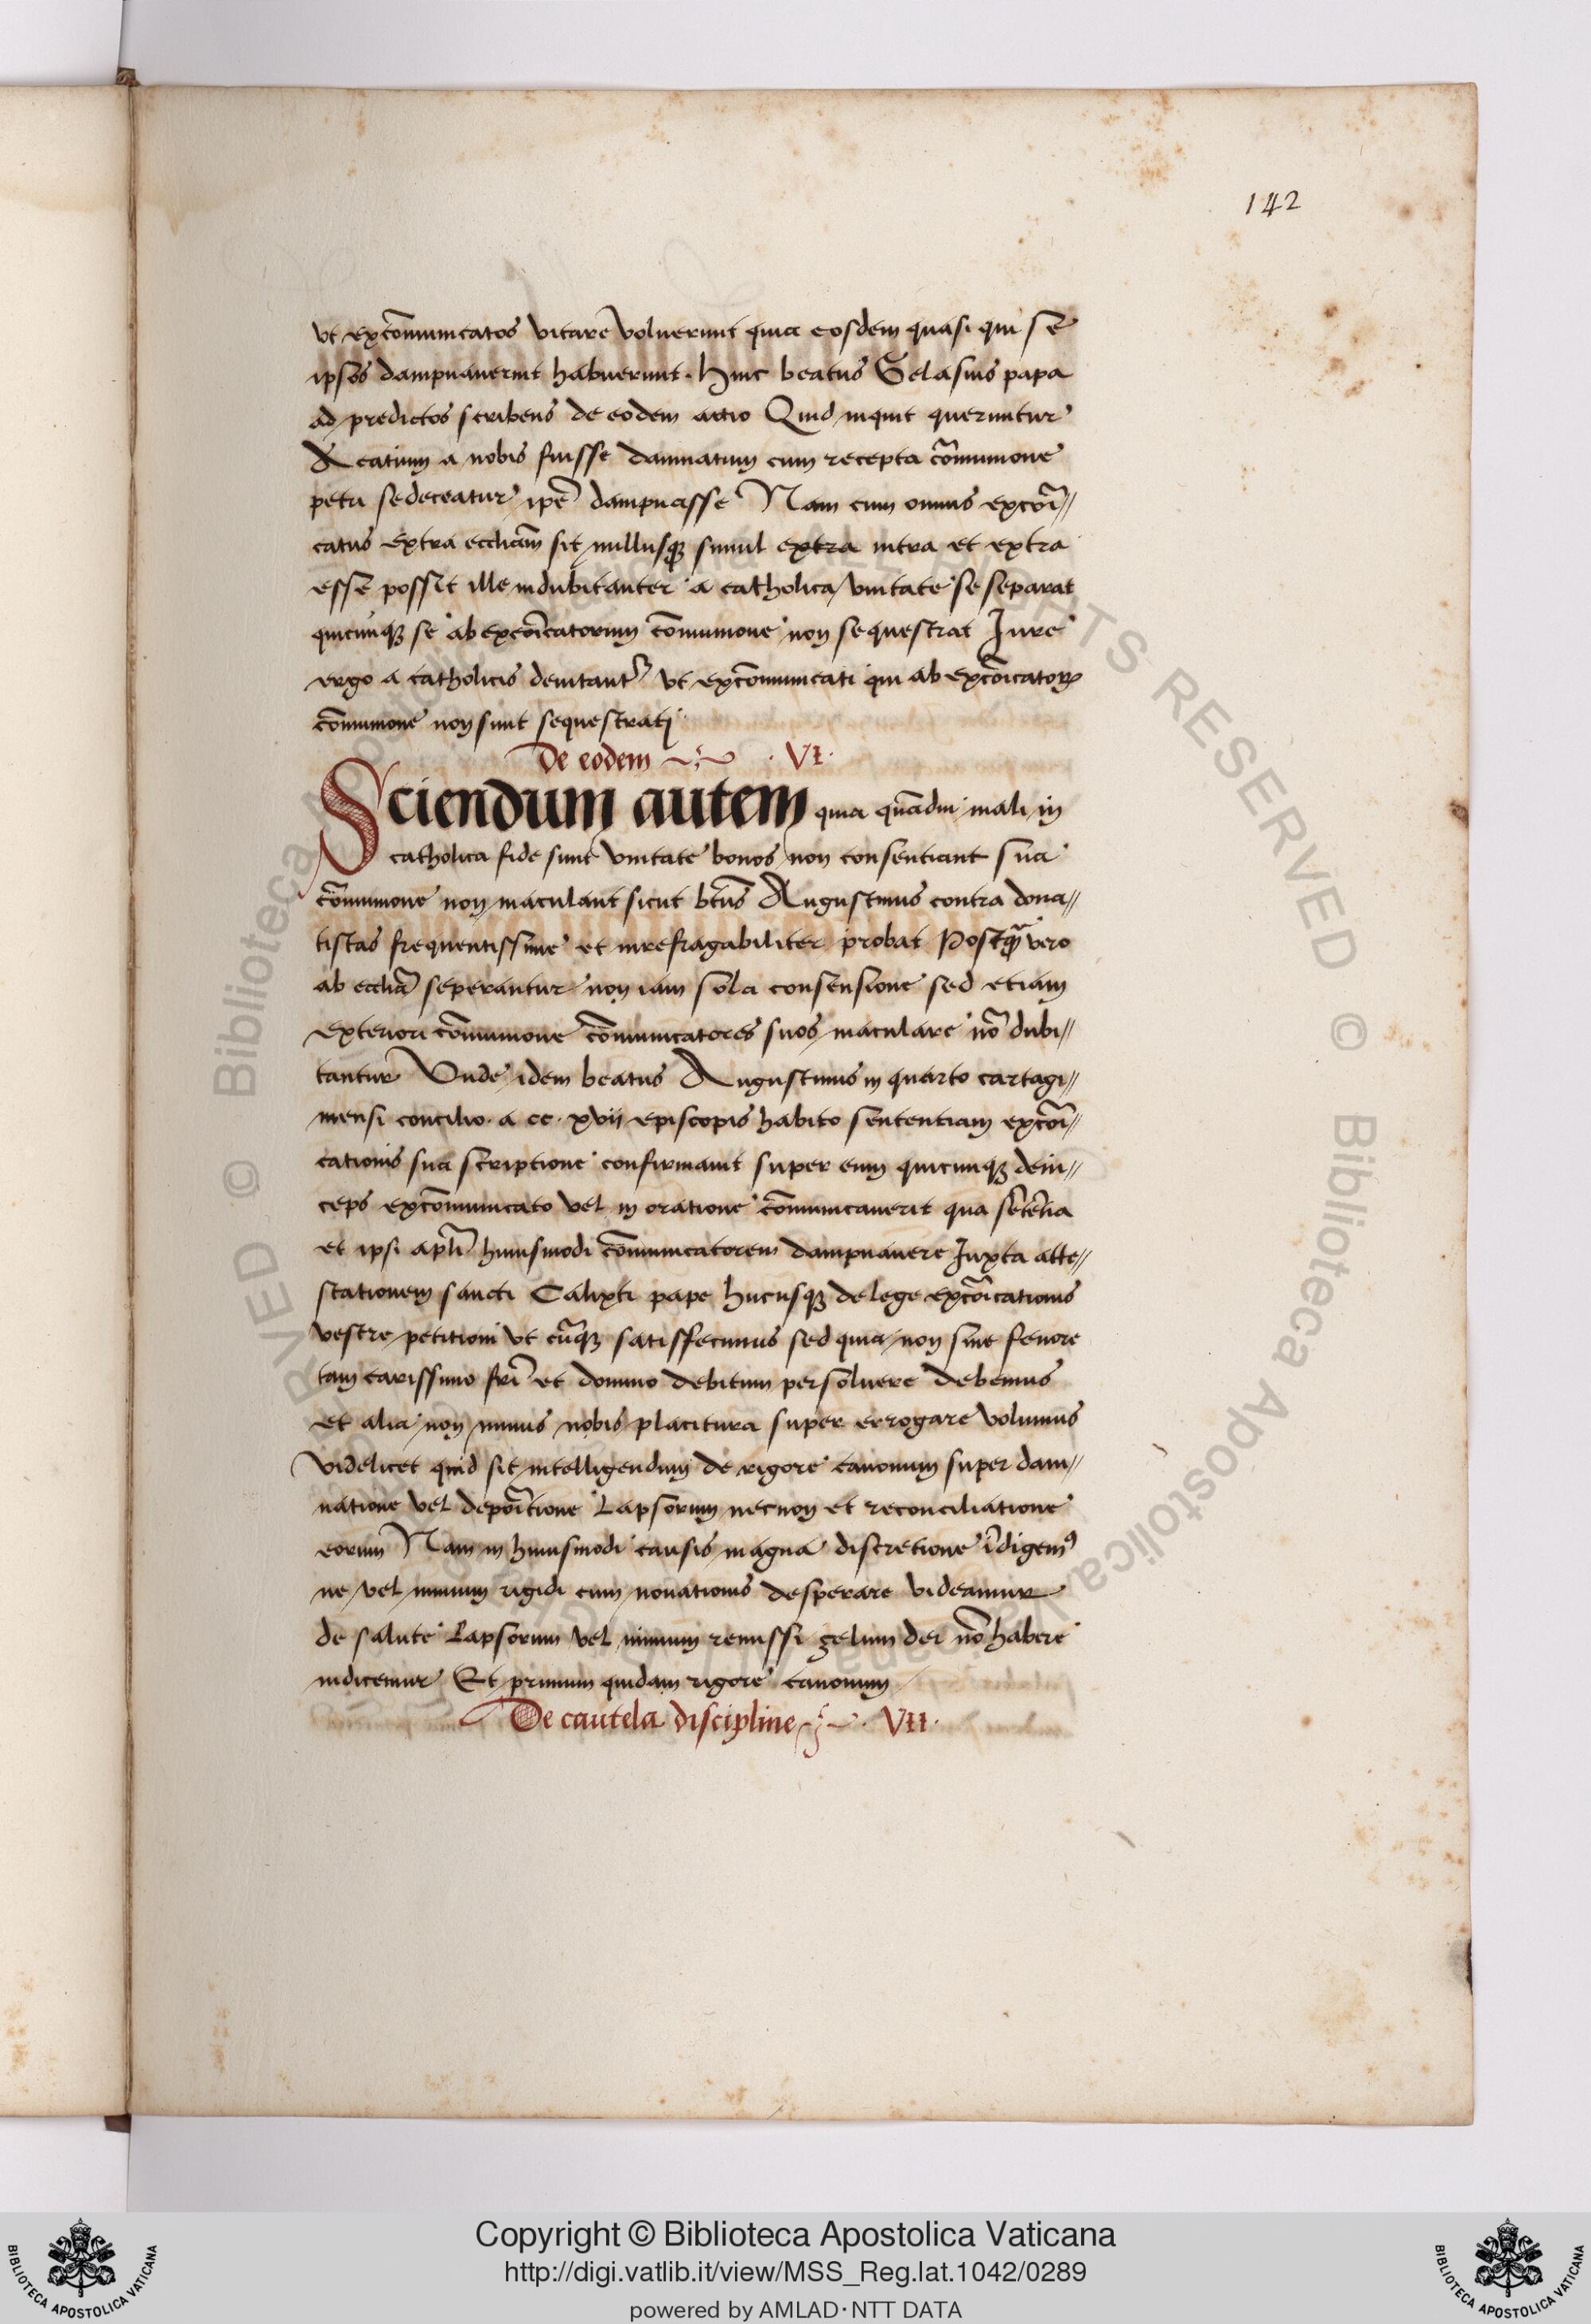 142
vt excõmunicatos vitare voluerunt quia eosdem quasi qui se
ipsos dampnauerint habuerunt. Hinc beatus Gelasius papa
ad predictos scribens de eodem accio Quid inquit queruntur
Acatium a nobis fuisse damnatum cum recepta cõmunione
petri se deceatur ipẽ dampnasse Nam cum omnis excõi//
catus extra eccliam̃ sit nullusqꝫ simul extra intra et extra
esse possit ille indubitanter a catholica vnitate se separat
quicunqꝫ se ab excõicatorum cõmunione non sequestrat Iure
ergo a catholicis deuitant᷒ vt excõmunicati qui ab excõicatoꝝ
cõmunione non sunt sequestrati
De eodem VI.
Sciendum autem quia quãdiu mali in
catholica fide sunt vnitate bonos non consentiant sua
cõmunione non maculant sicut btũs Augustinus contra dona//
tistas frequentissime et inrefragabiliter probat Postqꝫ̃ vero
ab eccliã seperantur non iam sola consensione sed etiam
exteriori cõmunione cõmunicatores suos maculare nõ dubi//
tantur Vnde idem beatus Augustinus in quarto cartagi//
nensi concilio. a cc. xvii episcopis habito sententiam excõi//
cationis sua scriptione confirmauit super eum quicunqꝫ dein//
ceps excõmunicato vel in oratione cõmunicauerit qua sẽtẽtia
et ipsi aptĩ huiusmodi cõmunicatorem dampnauere Iuxta atte//
stationem sancti Calixti pape hucusqꝫ de lege excõicationis
vestre petitioni vt cũqꝫ satisfecimus sed quia non sine fenore
tam carissimo frĩ et domino debitum persoluere debemus
et alia non minus nobis placitura super errogare volumus
videlicet quid sit intelligendum de rigore canonum super dam//
natione vel depoĩtione lapsorum necnon et reconciliatione
eorum Nam in huiusmodi causis magna discretione ĩdigemꝰ
ne vel nimium rigidi cum nouationis desperare videamur
de salute lapsorum vel nimium remissi zelum dei nõ habere
iudicemur Et primum quidam rigore canonum
De cautela discipline VII.
Copyright © Biblioteca Apostolica Vaticana
http://digi.vatlib.it/view/MSS_Reg.lat.1042/0289
powered by AMLAD·NTT DATA